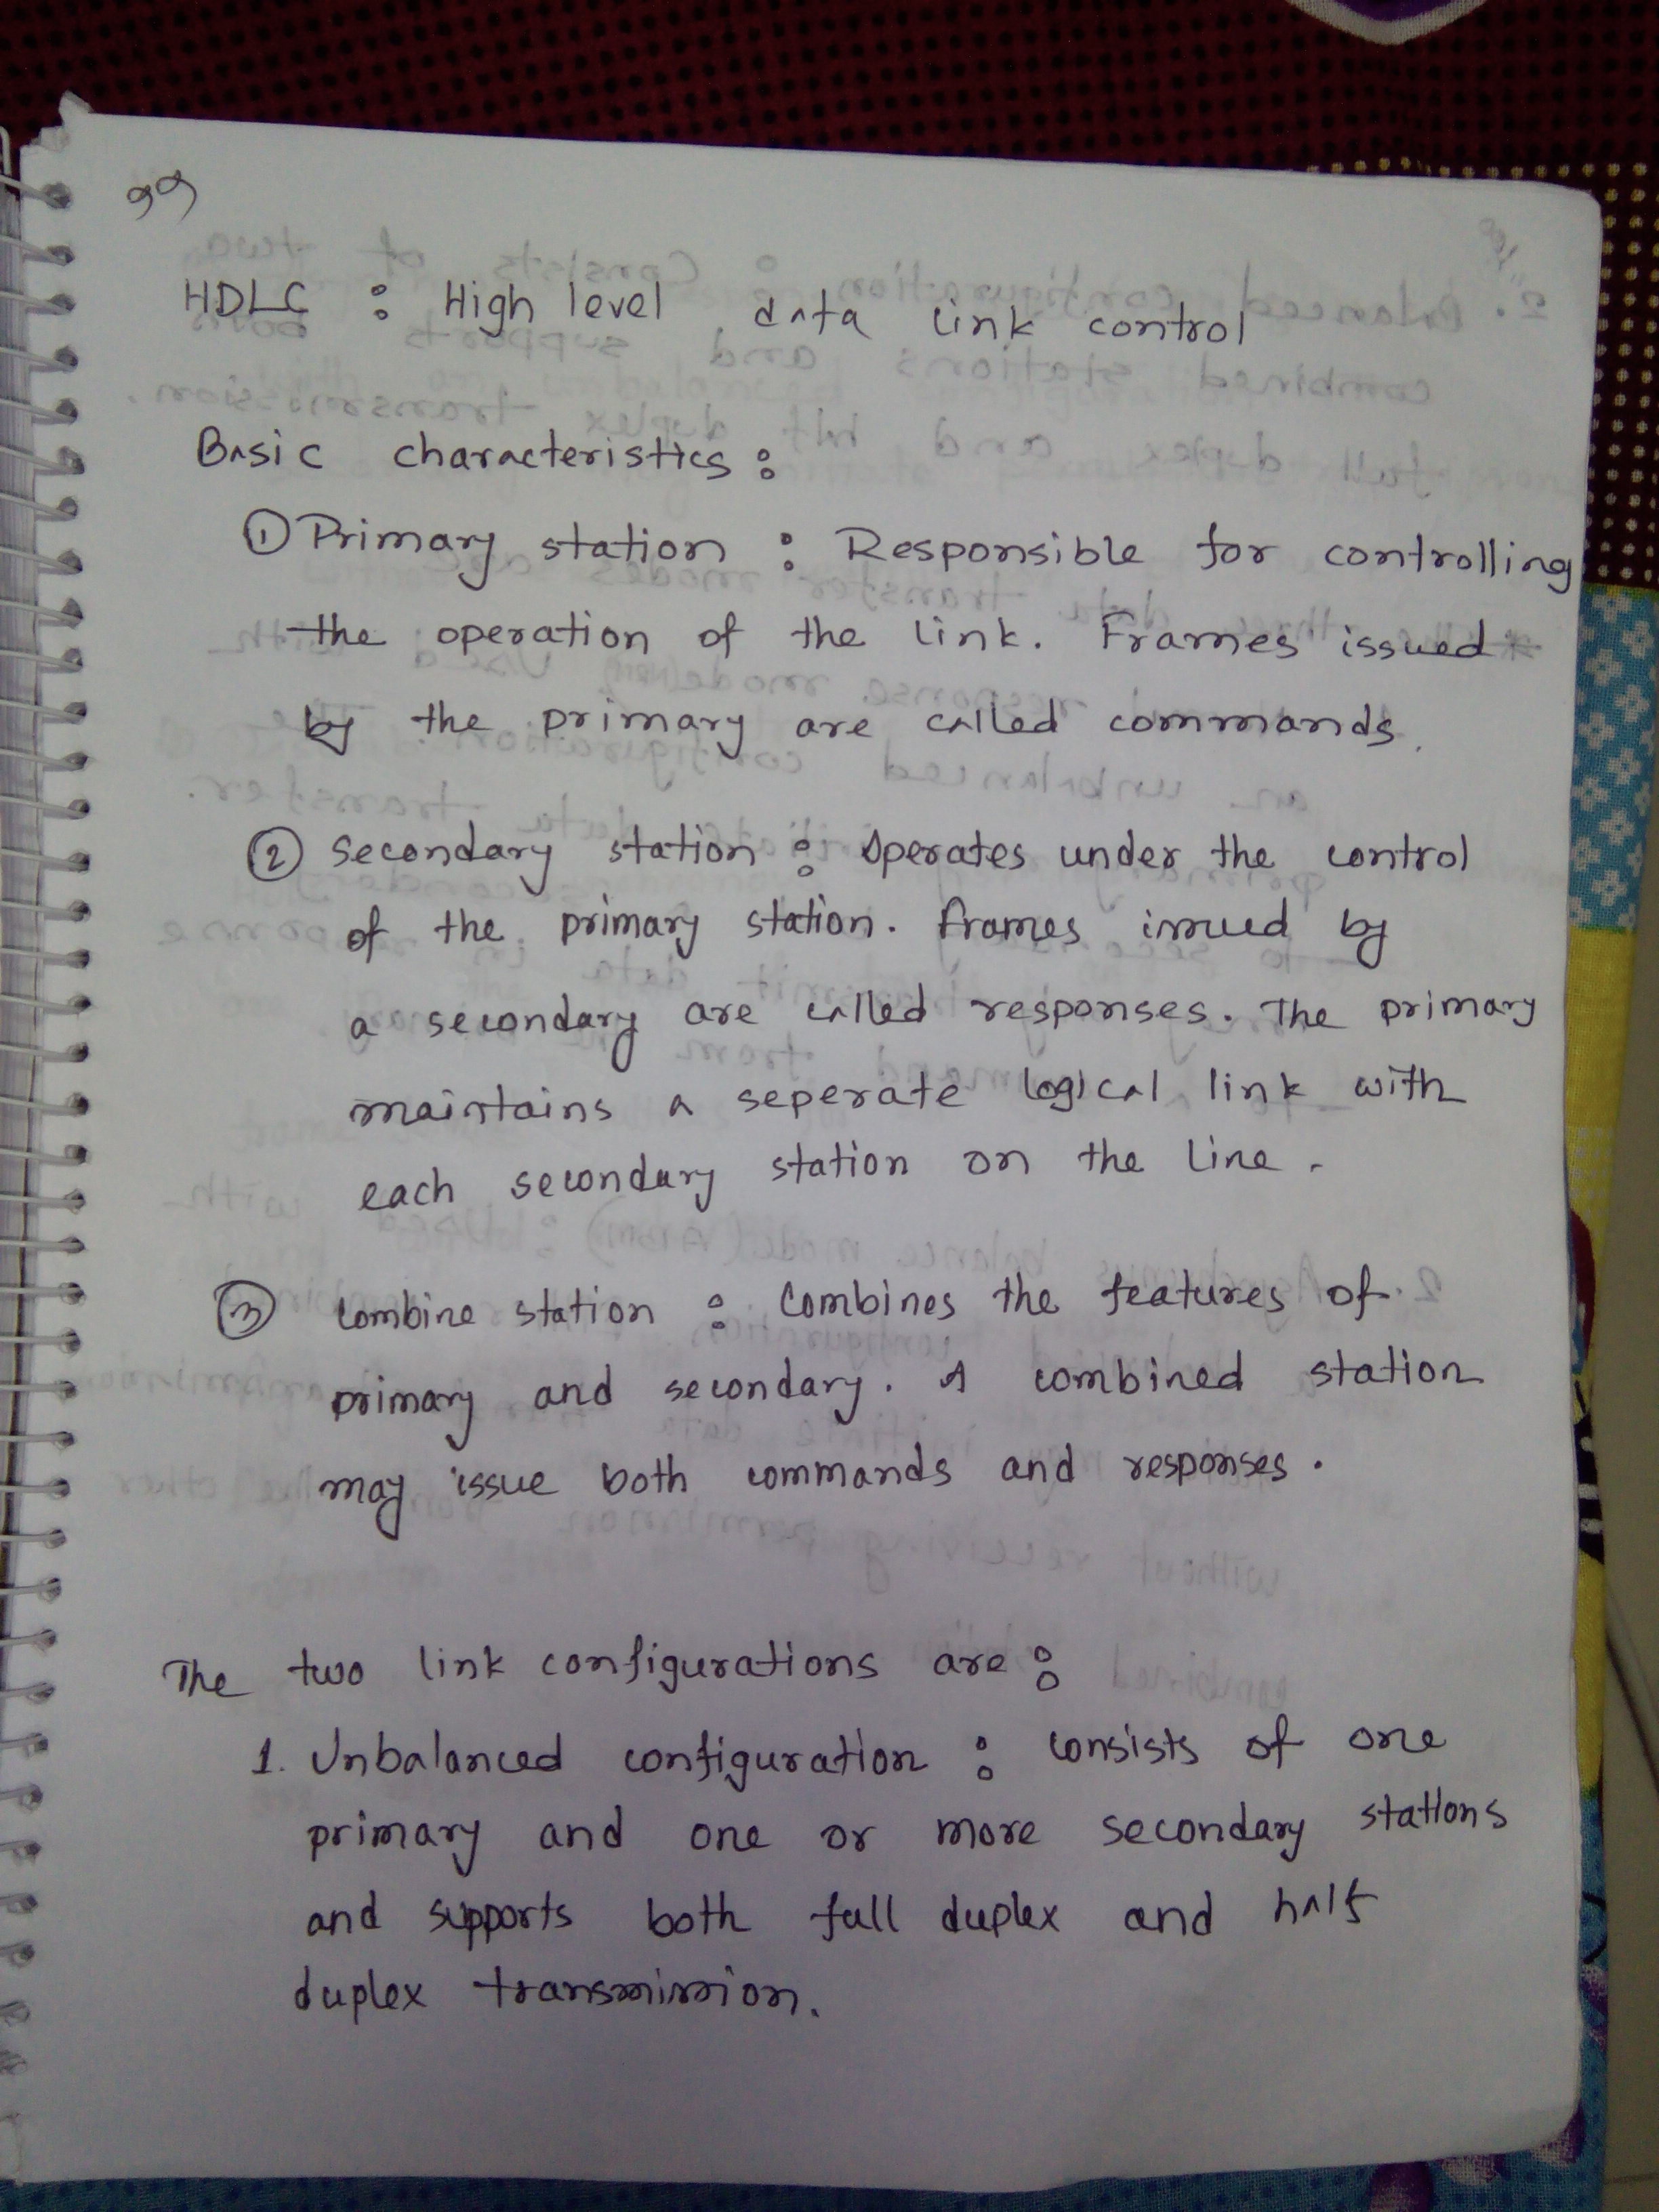 99
HDLC : High level data link control
Basic characteristics :
① Primary station : Responsible for controlling
the operation of the link. Frames issued
by the primary are called commands.
② Secondary station : Operates under the control
of the primary station. Frames issued by
a secondary are called responses. The primary
maintains a seperate logical link with
each secondary station on the line.
③ Combine station : Combines the features of
primary and secondary. A combined station
may issue both commands and responses.
The two link configurations are :
1. Unbalanced configuration : Consists of one
primary and one or more secondary stations
and supports both full duplex and half
duplex transmission.